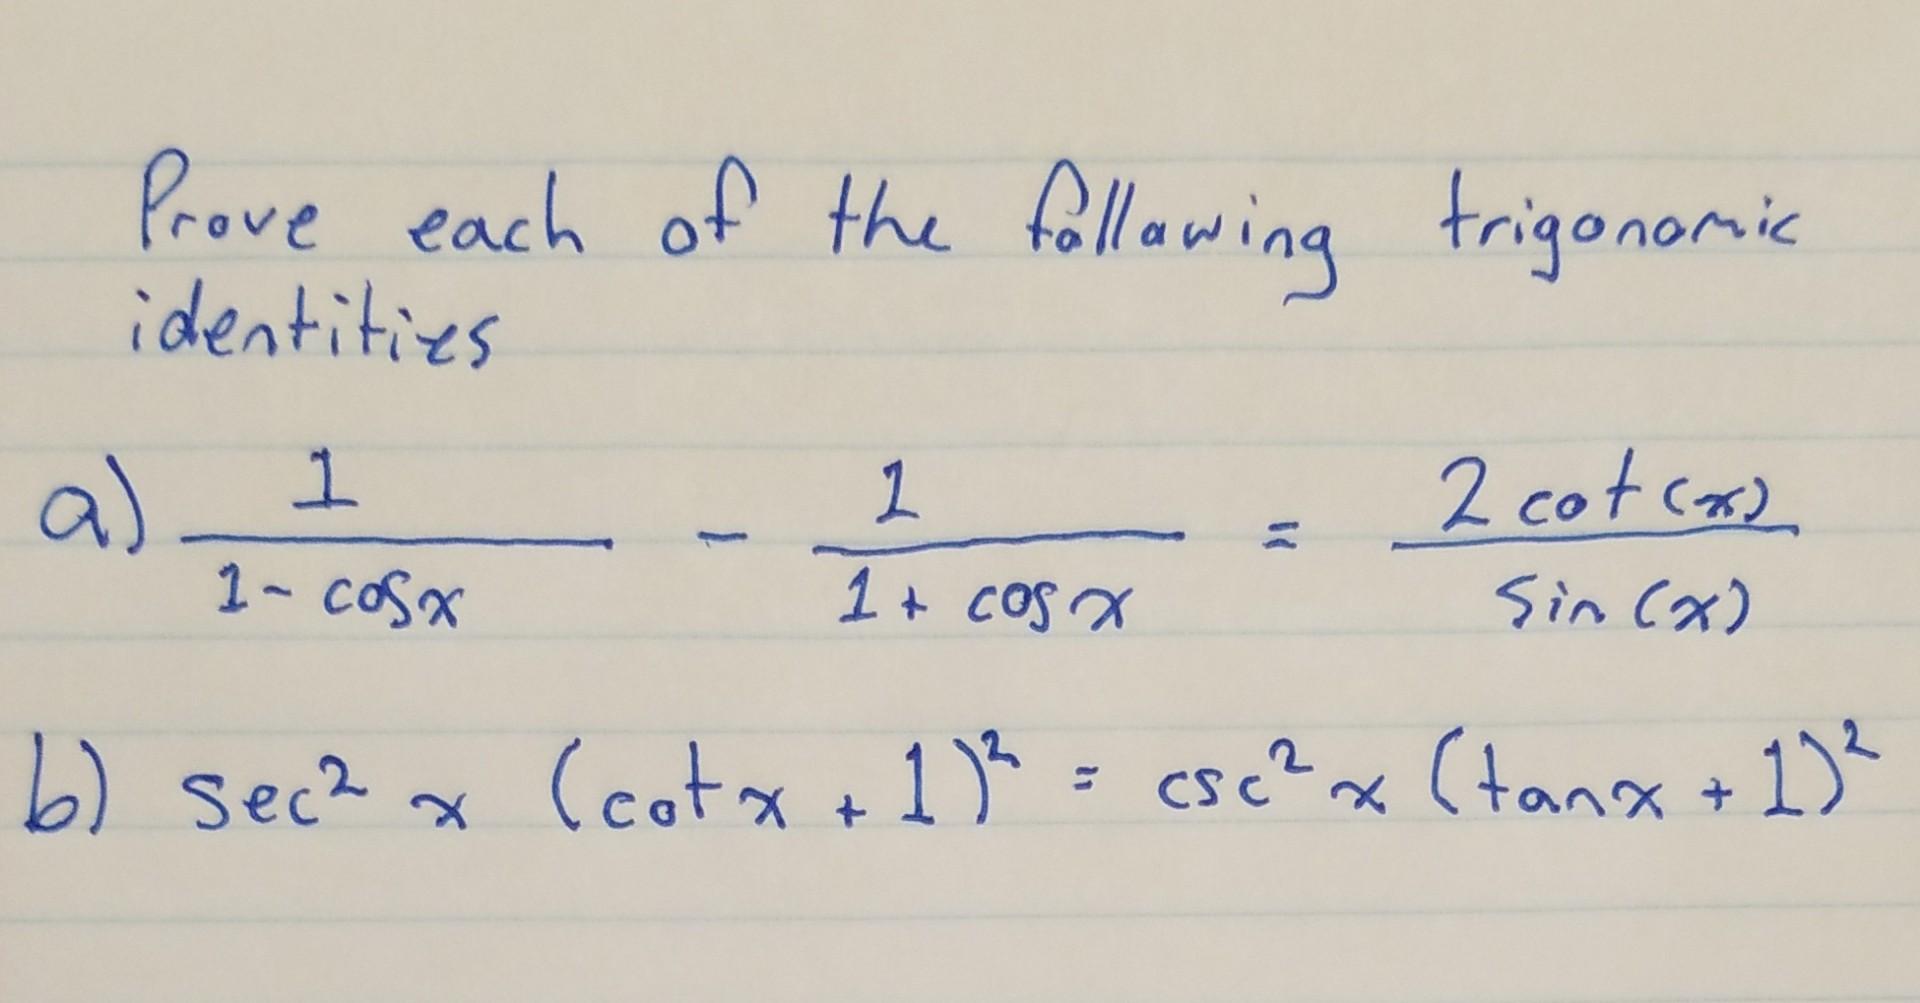 Prove each of the following trigonomic
identities
a) 1/(1 - cosx) - 1/(1 + cosx) = 2 cot(x)/sin(x)
b) sec² x (cotx + 1)² = csc² x (tanx + 1)²